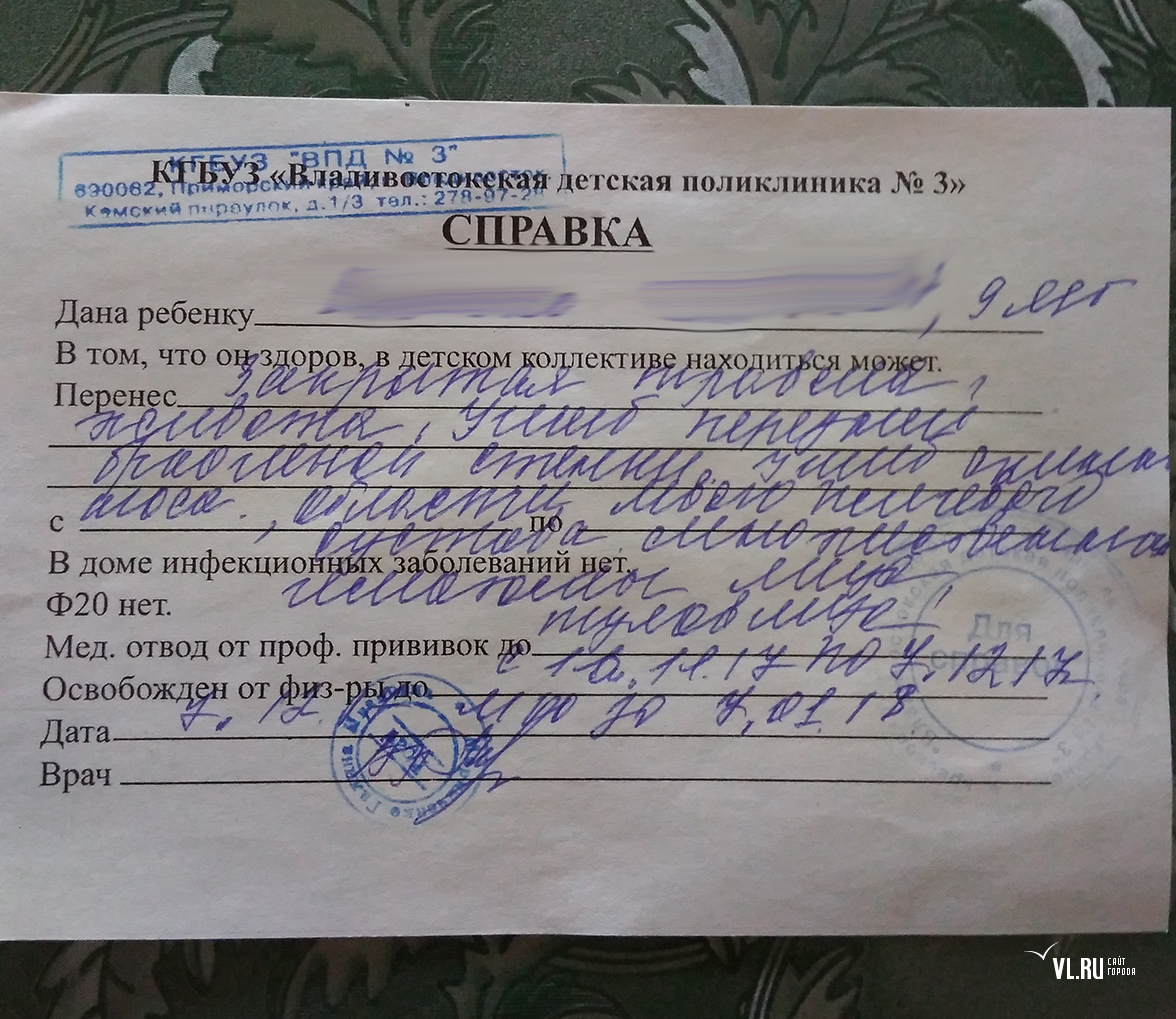 КГБУЗ "ВПД № 3"
КГБУЗ «Владивостокская детская поликлиника № 3»
690062, Приморский
Камский переулок, д.1/3 тел.: 278-97-2
СПРАВКА
Дана ребенку , 9 лет
В том, что он здоров, в детском коллективе находиться может.
Перенес Закрытая травма
живота, Ушиб передней
брюшной стенки. Ушиб
носа., области левого плечевого
с по
сустава. множественные
В доме инфекционных заболеваний нет.
гематомы лица
Ф20 нет.
туловища
Для
справок
Мед. отвод от проф. прививок до
с по 7.12.17.
Освобожден от физ-ры до
7.01.18
Дата
Врач
VL.RU САЙТ ГОРОДА